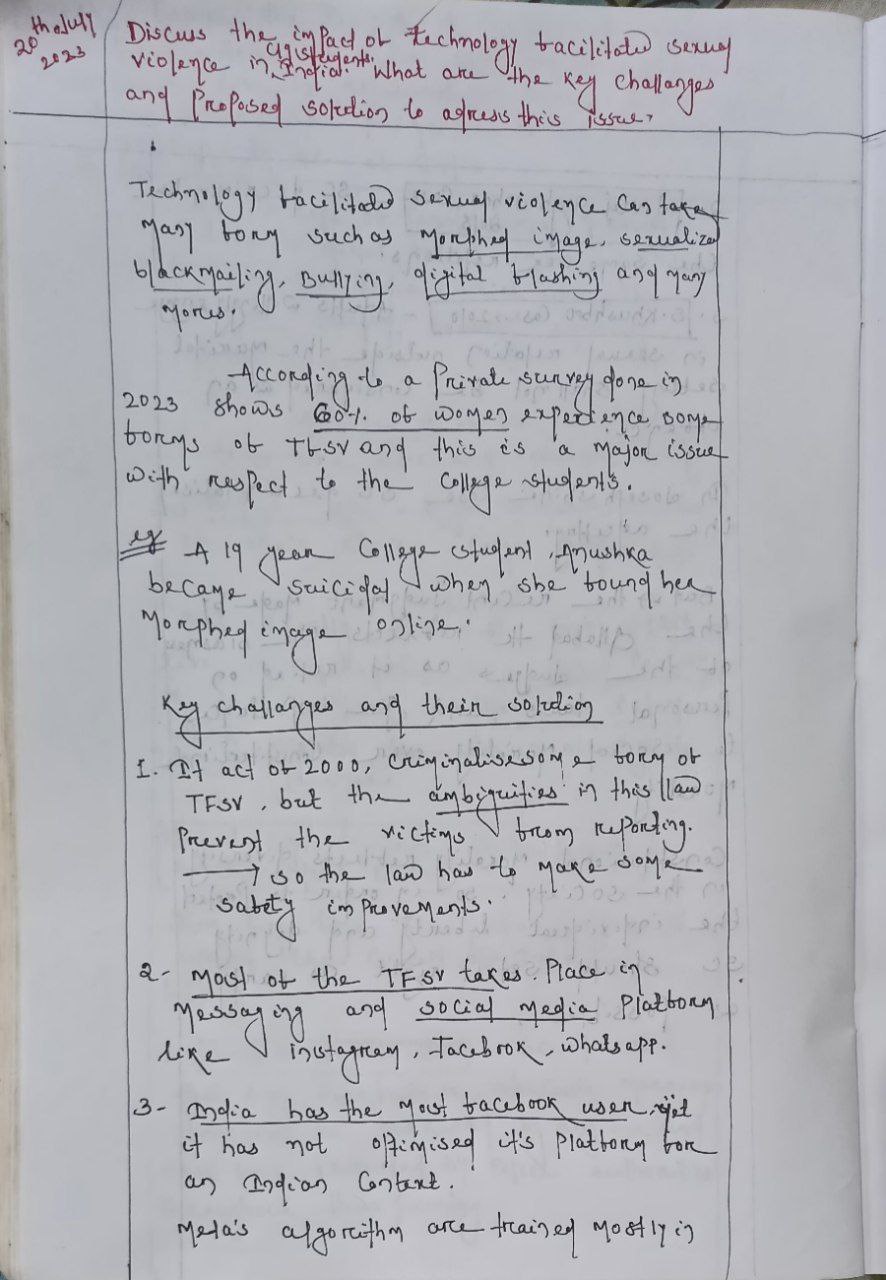 20th July
2023
Discuss the impact of technology facilitated sexual
violence in India. What are the key challanges
and Proposed solution to adress this issue?
Technology facilitated sexual violence can take
many form such as morphed image, sexualized
blackmailing, Bullying, digital flashing and many
mores.
According to a Private survey done in
2023 shows 60% of women experience some
forms of TFSV and this is a major issue
with respect to the college students.
eg A 19 year College student, Anushka
became suicidal when she found her
Morphed image online.
Key challanges and their solution
1. It act of 2000, criminalise some form of
TFSV, but the ambiguities in this law
Prevent the victims from reporting.
→ so the law has to make some
safety improvements.
2- Most of the TFSV takes Place in
Messaging and social media Platform
like instagram, Facebook, whatsapp.
3- India has the most facebook user, yet
it has not optimised it's Platform for
an Indian Context.
Meta's algorithm are trained mostly in